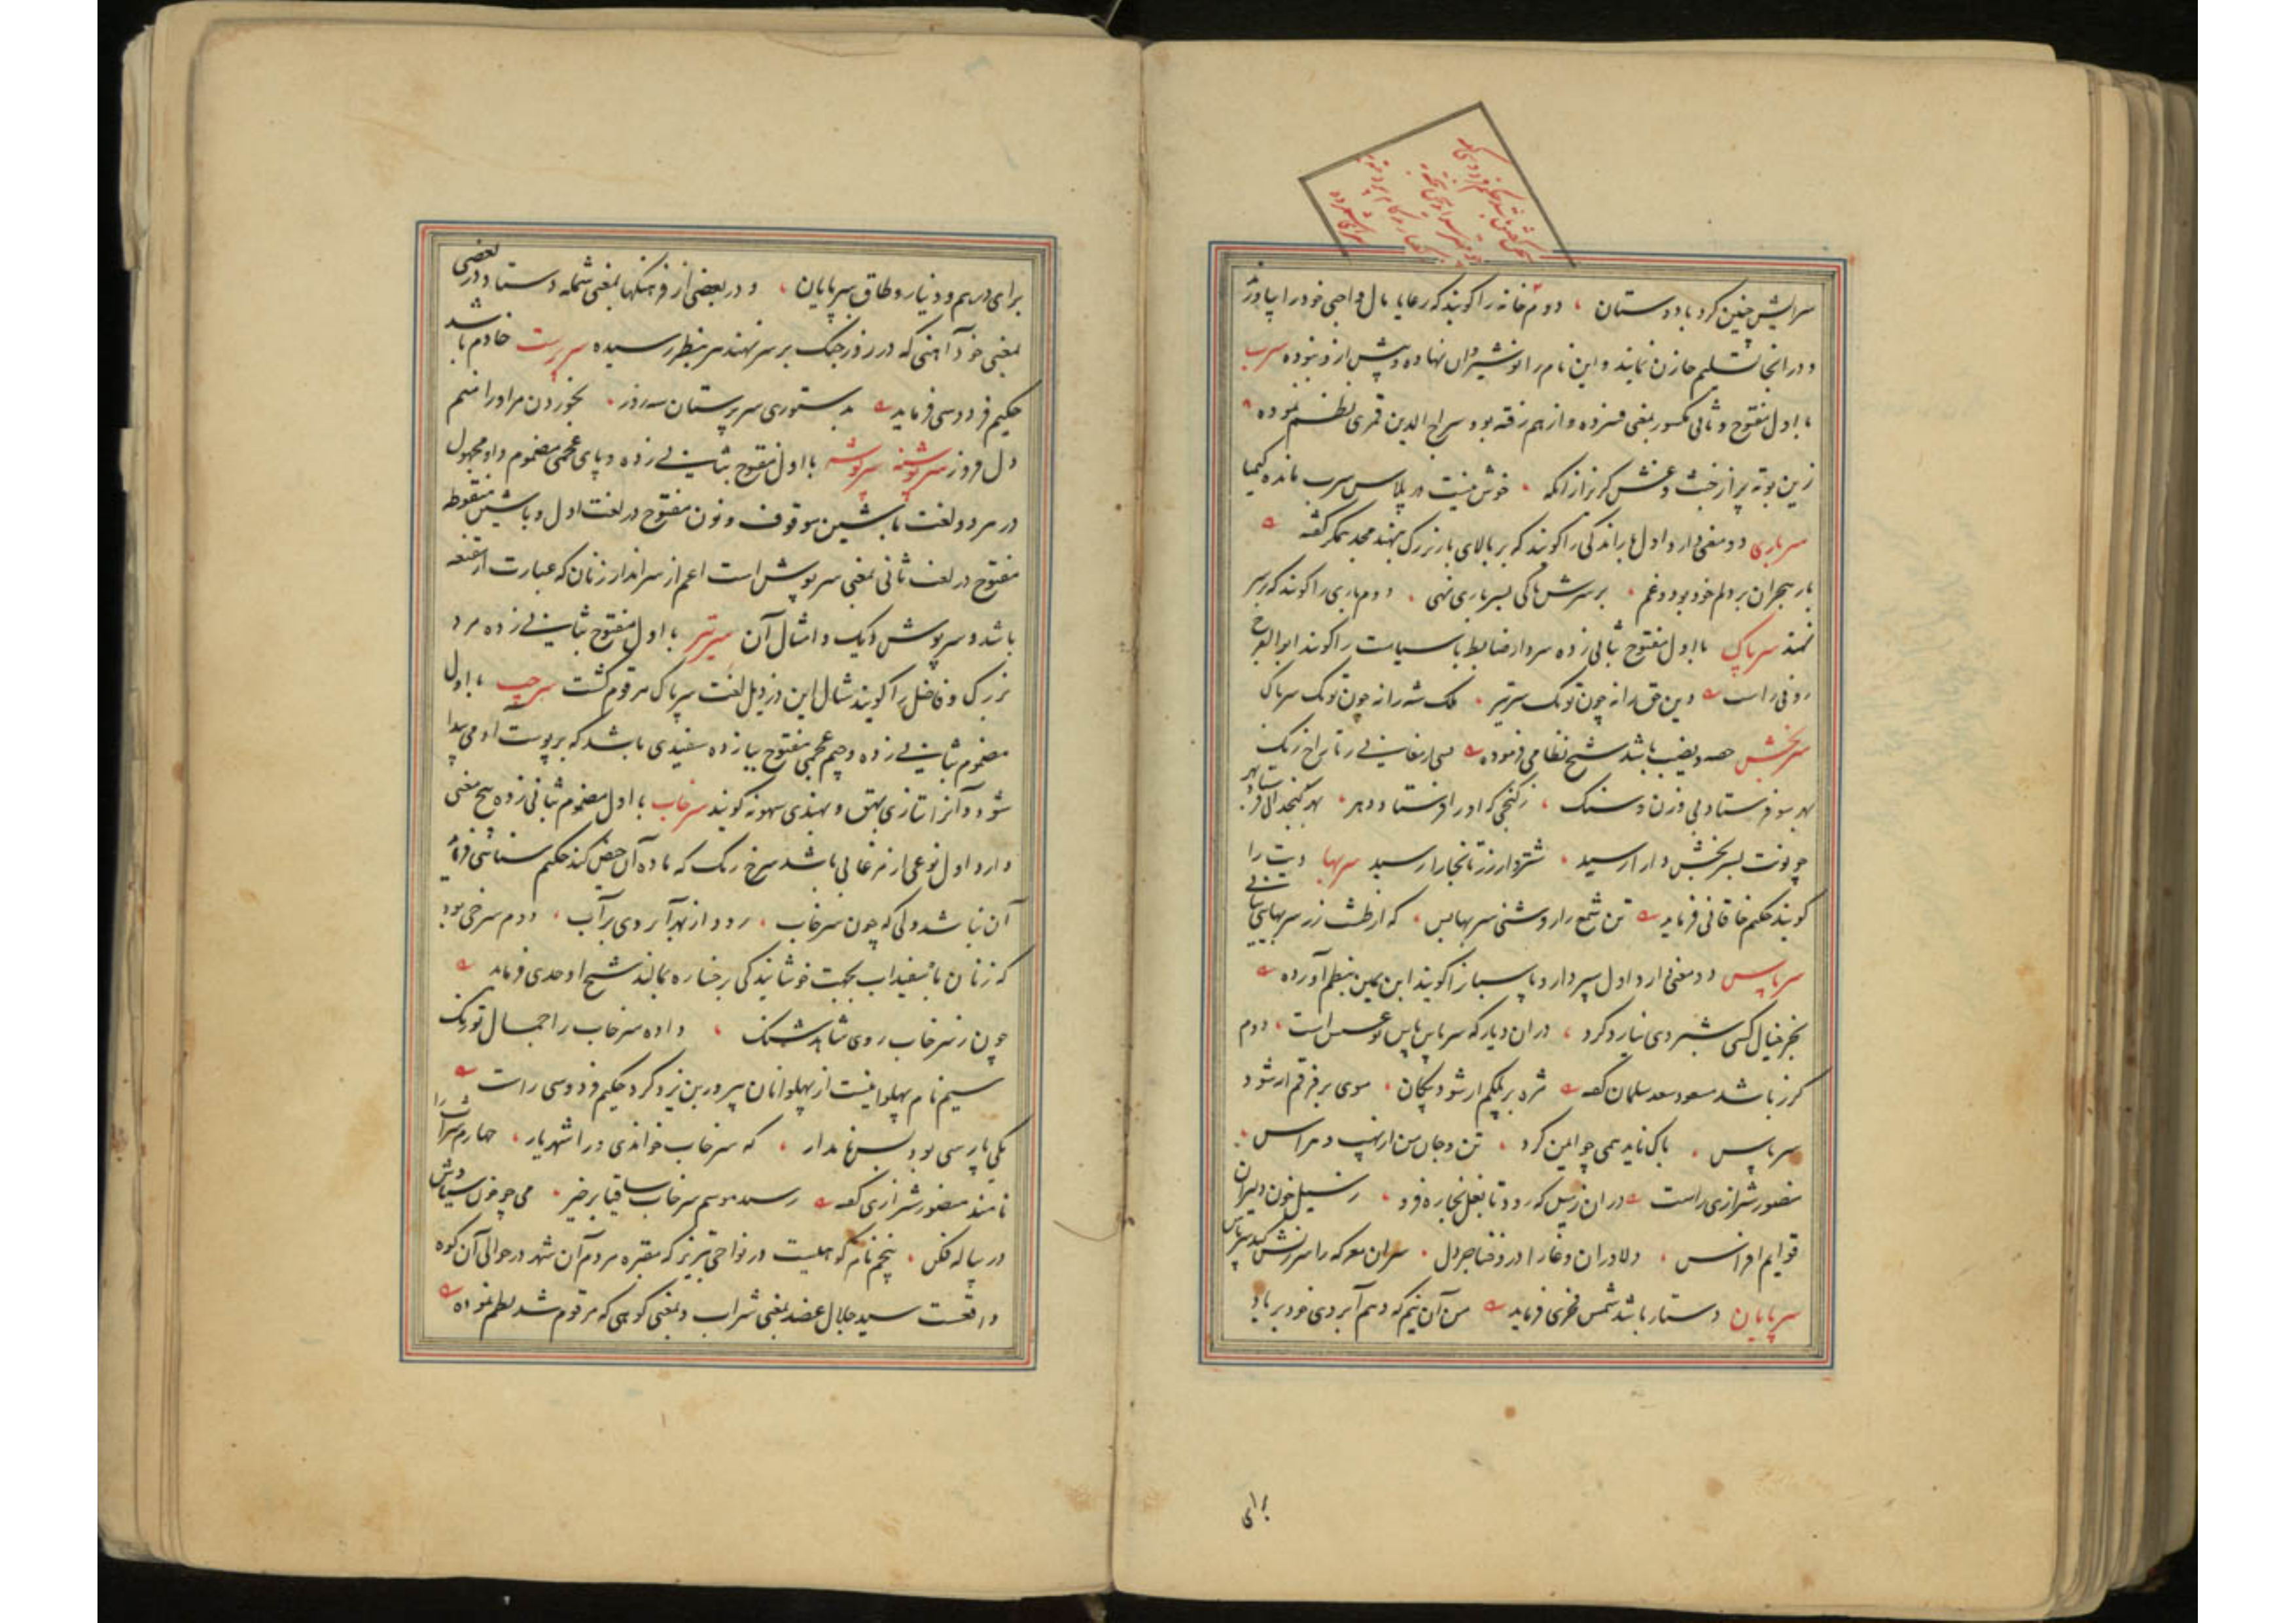 سرایش چنین کرد با دوستان ، دوم خانه را گویند که رعایا مال واجبی خود را بیاورند
و در انجا تسلیم خازن نمایند و این نام را نوشیروان نهاده و پیش از و نبوده سرب
با اول مفتوح و ثانی مکسور بمعنی فسرده و از هم رفته بود سراج الدین قمری نظم نموده
زین بوته پر از خبث و غش گریز ازانکه ، خوش نیست در پلاس سرب مانده کیمیا
سرباری دو معنی دارد اول بار اندکی را گویند که بر بالای بار بزرگ نهند مجد همگر گفته
بار هجران بر دلم خود بود و غم ، بر سرش هاکی بسرباری نهی ، دوم باری را گویند که بر سر
نهند سرپاک با اول مفتوح بثانی زده سردار ضابط با سیاست را گویند ابوالفرج
رونی راست دین حق را نه چون تو یک سرتیر ، ملک شه را نه چون تو یک سرپاک
سربخش حصه و نصیب باشد شیخ نظامی فرموده
بهر سو فرستاد بی وزن و سنگ ، ز گنجی که او را فرستاد دهر ، بهر گنجدانی فرستاد بهر
چو نوبت بسربخش دارا رسید ، شتربار زر تا بخارا رسید سربها دیت را
گویند حکیم خاقانی فرماید تن شمع را روشنی سربها بس ، که از طشت زر سربهایی نیابی
سرپاس دو معنی دارد اول سپردار و پاسبان را گویند ابن یمین بنظم آورده
بجز خیال کسی شبروی نیارد کرد ، در ان دیار که سرپاس پاس تو عسس است ، دوم
گرز باشد مسعود سعد سلمان گفته مژه بر پلکم ار شود پیکان ، موی بر فرقم ار شود
سرپاس ، باک ناید همی چو ایمن کرد ، تن و جان من از نهیب و هراس
منصور شیرازی راست در ان زمین که رود تا بنعل بخاره فرو ، ز سیل خون دلیران
قوایم افراس ، دلاوران وغا را درد خناجر دل ، سران معرکه را سرزنش کند سرپاس
سرپایان دستار باشد شمس فخری فرماید من آن نیم که دهم آبروی خود بر باد
برای
برای درهم و دینار و طاق سرپایان ، و در بعضی از فرهنگها بمعنی شمله دستار و در بعضی
بمعنی خود آهنی که در روز جنگ بر سر نهند سرپنظر رسیده سرپرست خادم باشد
حکیم فردوسی فرماید بدستوری سرپرستان سه روز ، بخوردن مر او را منم
دل فروز سرپوشنه سرپوشه با اول مفتوح بثانی زده و بای عجمی مضموم و واو مجهول
در هر دو لغت با شین موقوف و نون مفتوح در لغت اول و با شین منقوطه
مفتوح در لغت ثانی بمعنی سرپوش است اعم از سرانداز زنان که عبارت از مقنعه
باشد و سرپوش دیگ و امثال آن سرتیر با اول مفتوح بثانی زده مرد
بزرگ و فاضل را گویند مثال این در ذیل لغت سرپاک مرقوم گشت سرچپ با اول
مضموم بثانی زده و جیم عجمی مفتوح ببا زده سفیدی باشد که بر پوست آدمی پیدا
شود و آنرا بتازی بهق و بهندی سهونه گویند سرخاب با اول مضموم بثانی زده پنج معنی
دارد اول نوعی از مرغابی باشد سرخ رنگ که ماده آن حیض کند حکیم سنائی فرماید
آن نباشد ولی که چون سرخاب ، رود از بهر آبروی بر آب ، دوم سرخی بود
که زنان با سفیداب بجهت خوشایندگی بر رخساره بمالند شیخ اوحدی فرماید
چون ز سرخاب روی شاهد شنگ ، داده سرخاب را جمال تو رنگ
سیم نام پهلوانیست از پهلوانان پیروز بن یزدگرد حکیم فردوسی راست
یکی پارسی بود بس نامدار ، که سرخاب خواندی ورا شهریار ، چهارم شراب را
نامند منصور شیرازی گفته رسید موسم سرخاب ساقیا برخیز ، می چو خون سیاوش
در پیاله فکن ، پنجم نام کوهیست در نواحی تبریز که مقبره مردم آن شهر در حوالی آن کوه
واقعست سید جلال عضد بمعنی شراب و بمعنی کوهی که مرقوم شد نظم نموده